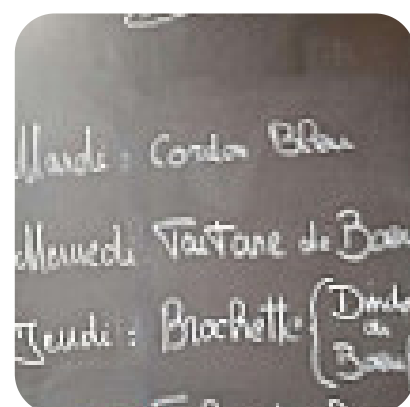 Mardi : Cordon Bleu
Mercredi Tartare de Boeu
Jeudi : Brochette { Dinde
ou
Boeuf